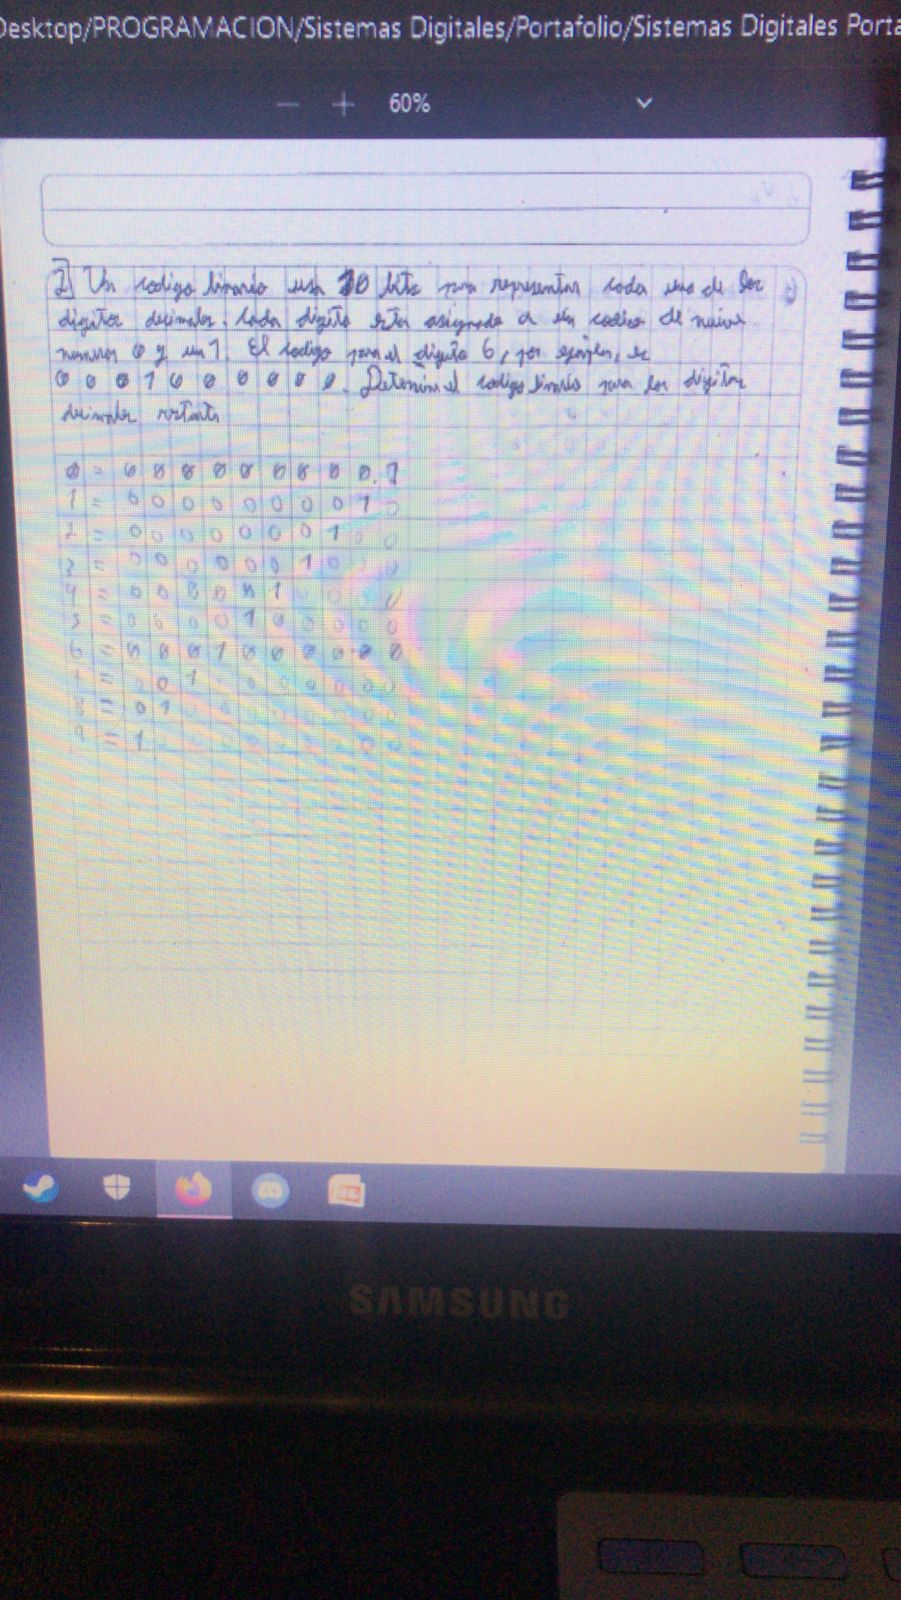 Desktop/PROGRAMACION/Sistemas Digitales/Portafolio/Sistemas Digitales Porta
60%
2] Un codigo binario usa 10 bits para representar cada uno de los
digitos decimales. Cada digito esta asignado a un codigo de nueve
numeros 0 y un 1. El codigo para el digito 6, por ejemplo, es
0 0 0 1 0 0 0 0 0 0. Determina el codigo binario para los digitos
decimales
0 = 0 0 0 0 0 0 0 0 0 1
1 = 0 0 0 0 0 0 0 0 1 0
2 = 0 0 0 0 0 0 0 1 0 0
3 = 0 0 0 0 0 0 1 0 0 0
4 = 0 0 0 0 0 1 0 0 0 0
5 = 0 0 0 0 1 0 0 0 0 0
6 = 0 0 0 1 0 0 0 0 0 0
= 0 1 0 0 0 0 0
8 = 0 1 0 0 0 0 0 0
9 = 1 0 0
SAMSUNG